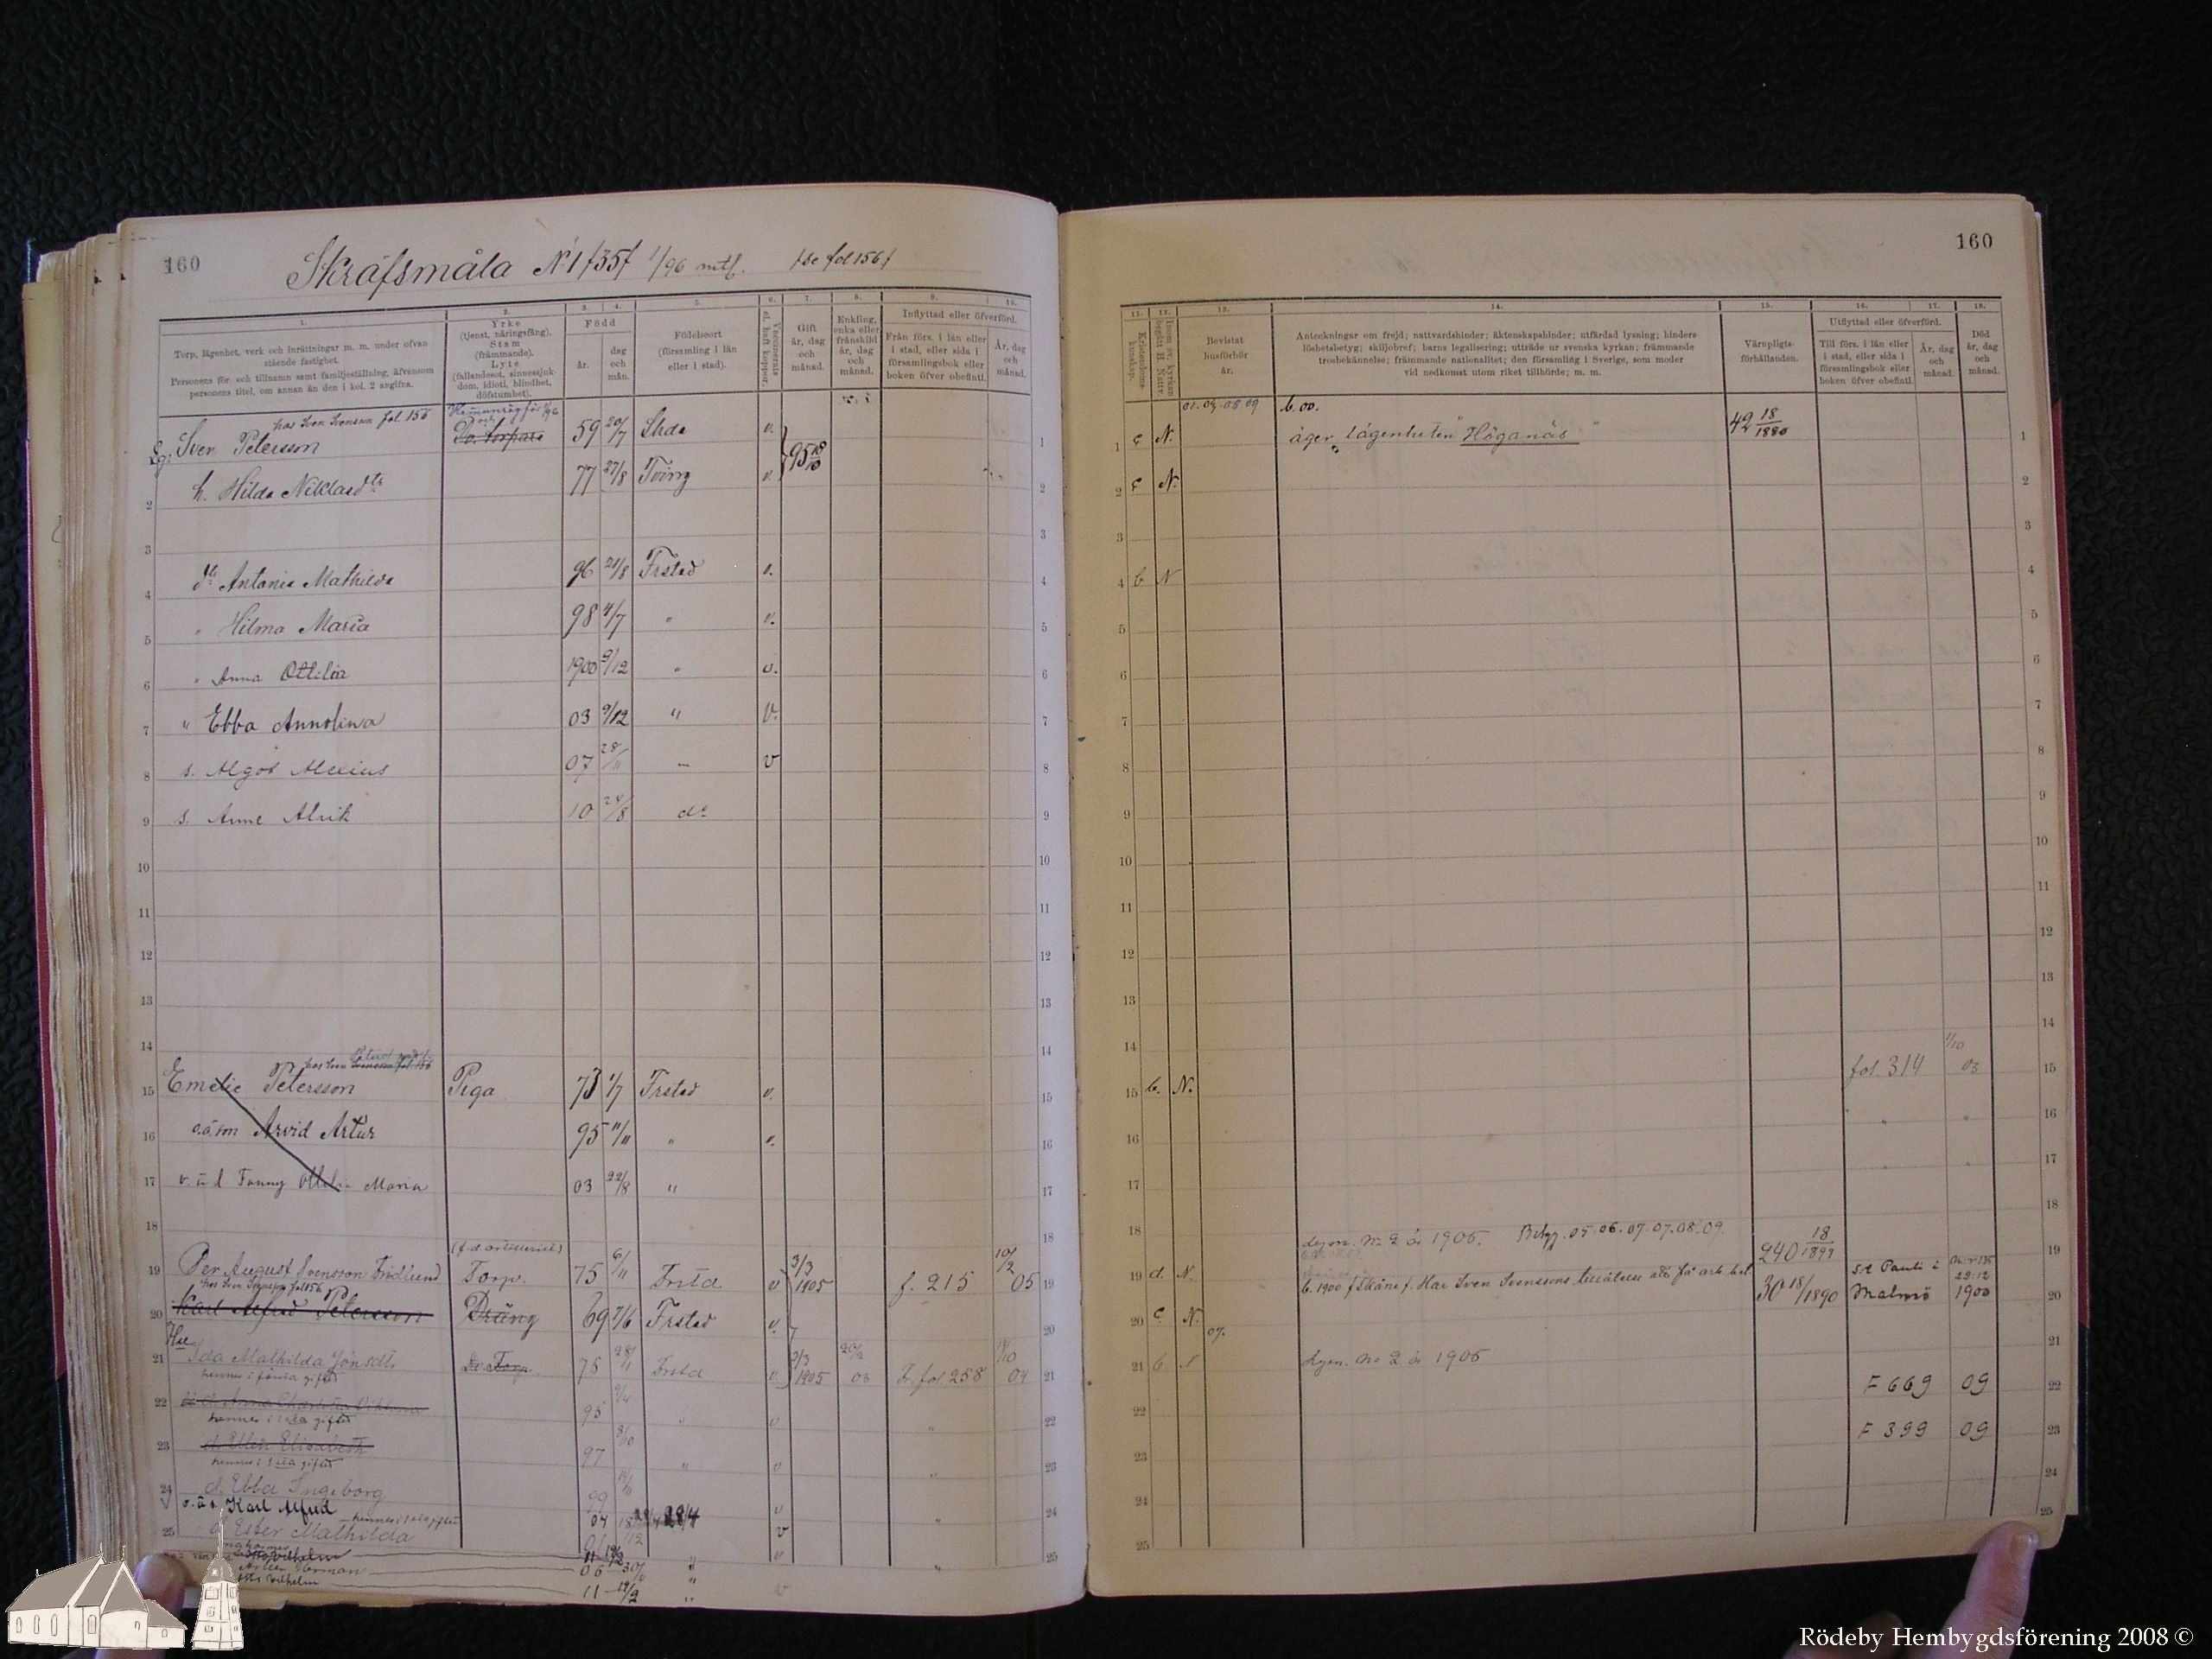 160
Skräfsmåla No 1 /35/ 1/96 mtl. /se fol 156/
1. 2. 3. 4. 5. 6. 7. 8. 9. 10.
Torp, lägenhet, verk och inrättningar m. m. under ofvanstående fastighet.
Personens för- och tillnamn samt familjeställning, äfvensom personens titel, om annan än den i kol. 2 angifna.
Yrke (tjenst, näringsfång). Stam (främmande). Lyte (fallandesot, sinnessjukdom, idioti, blindhet, döfstumhet).
Född
år.
dag och mån.
Födelseort (församling i län eller i stad).
Vaccinerats el. haft koppor.
Gift år, dag och månad.
Enkling, enka eller frånskild år, dag och månad.
Inflyttad eller öfverförd.
Från förs. i län eller i stad, eller sida i församlingsbok eller boken öfver obefintl.
År, dag och månad.
hos Sven Svensson fol. 156
1 Sven Petersson 59 20/7 v. 95
2 h. Hilda Niklasdtr 77 27/8 Tving v.
3
4 dtr Antonia Mathilda 96 21/8 Frstad v.
5 " Hilma Maria 98 4/7 " v.
6 " Anna Ottilia 1900 9/12 " v.
7 " Ebba Annolina 03 9/12 " v.
8 s. Algot Alexius 07 28/11 v
9 s. Arne Alrik 10 24/8 do
10
11
12
13
14
hos Sven Svensson fol. 156
15 Emelie Petersson Piga 73 1/7 Frstad v.
16 o.ä. son Arvid Artur 95 11/11 " v.
17 o.ä d Fanny Maria 03 22/8 "
18
19 Per August Svensson Fridlund Torp. 75 6/11 Frstd v 3/3 1905 f. 215 10/2 05
hos Sven Svensson fol 156
20 Karl Alfred Petersson Dräng 69 7/6 Frstad v.
21 Hu Ida Mathilda Jönsdtr. 75 28/1 Frstd v. 3/3 1905 fr. fol. 258 04
hennes i förra giftet
22 95 v
hennes i 1sta giftet
23 d. Ellen Elisabeth 97 8/10 " v
hennes i 1sta giftet
24 d. Ebba Ingeborg 99 v
o.ä s. Karl Alfred 04 v
25 d Ester Mathilda
Herman 06
Vilhelm 11 19/2
160
11. 12. 13. 14. 15. 16. 17. 18.
Kristendomskunskap.
Inom sv. kyrkan begått H. Nattv.
Bevistat husförhör år.
Anteckningar om frejd; nattvardshinder; äktenskapshinder; utfärdad lysning; hinderslöshetsbetyg; skiljobref; barns legalisering; utträde ur svenska kyrkan; främmande trosbekännelse; främmande nationalitet; den församling i Sverige, som moder vid nedkomst utom riket tillhörde; m. m.
Värnpligtsförhållanden.
Utflyttad eller öfverförd.
Till förs. i län eller i stad, eller sida i församlingsbok eller boken öfver obefintl.
År, dag och månad.
Död år, dag och månad.
b. 00.
1 c N. äger lägenheten Höganäs 42 18/1880
2 c N.
3
4 b N
5
6
7
8
9
10
11
12
13
14
15 b. N. fol. 314 1/10 03
16
17
18 dyom. No 2 år 1905. Betyg. 05.06.07.07.08.09. 240 18/1897
19 d. N. b. 1900 f. Skåne f. Har Sven Svenssons tillåtelse att få arb. bet. S:t Pauli i
20 c N. 30 18/1890 Malmö 1900
21 b N dyom. No 2 år 1905
22 F 669 09
23 F 399 09
24
25
Rödeby Hembygdsförening 2008 ©